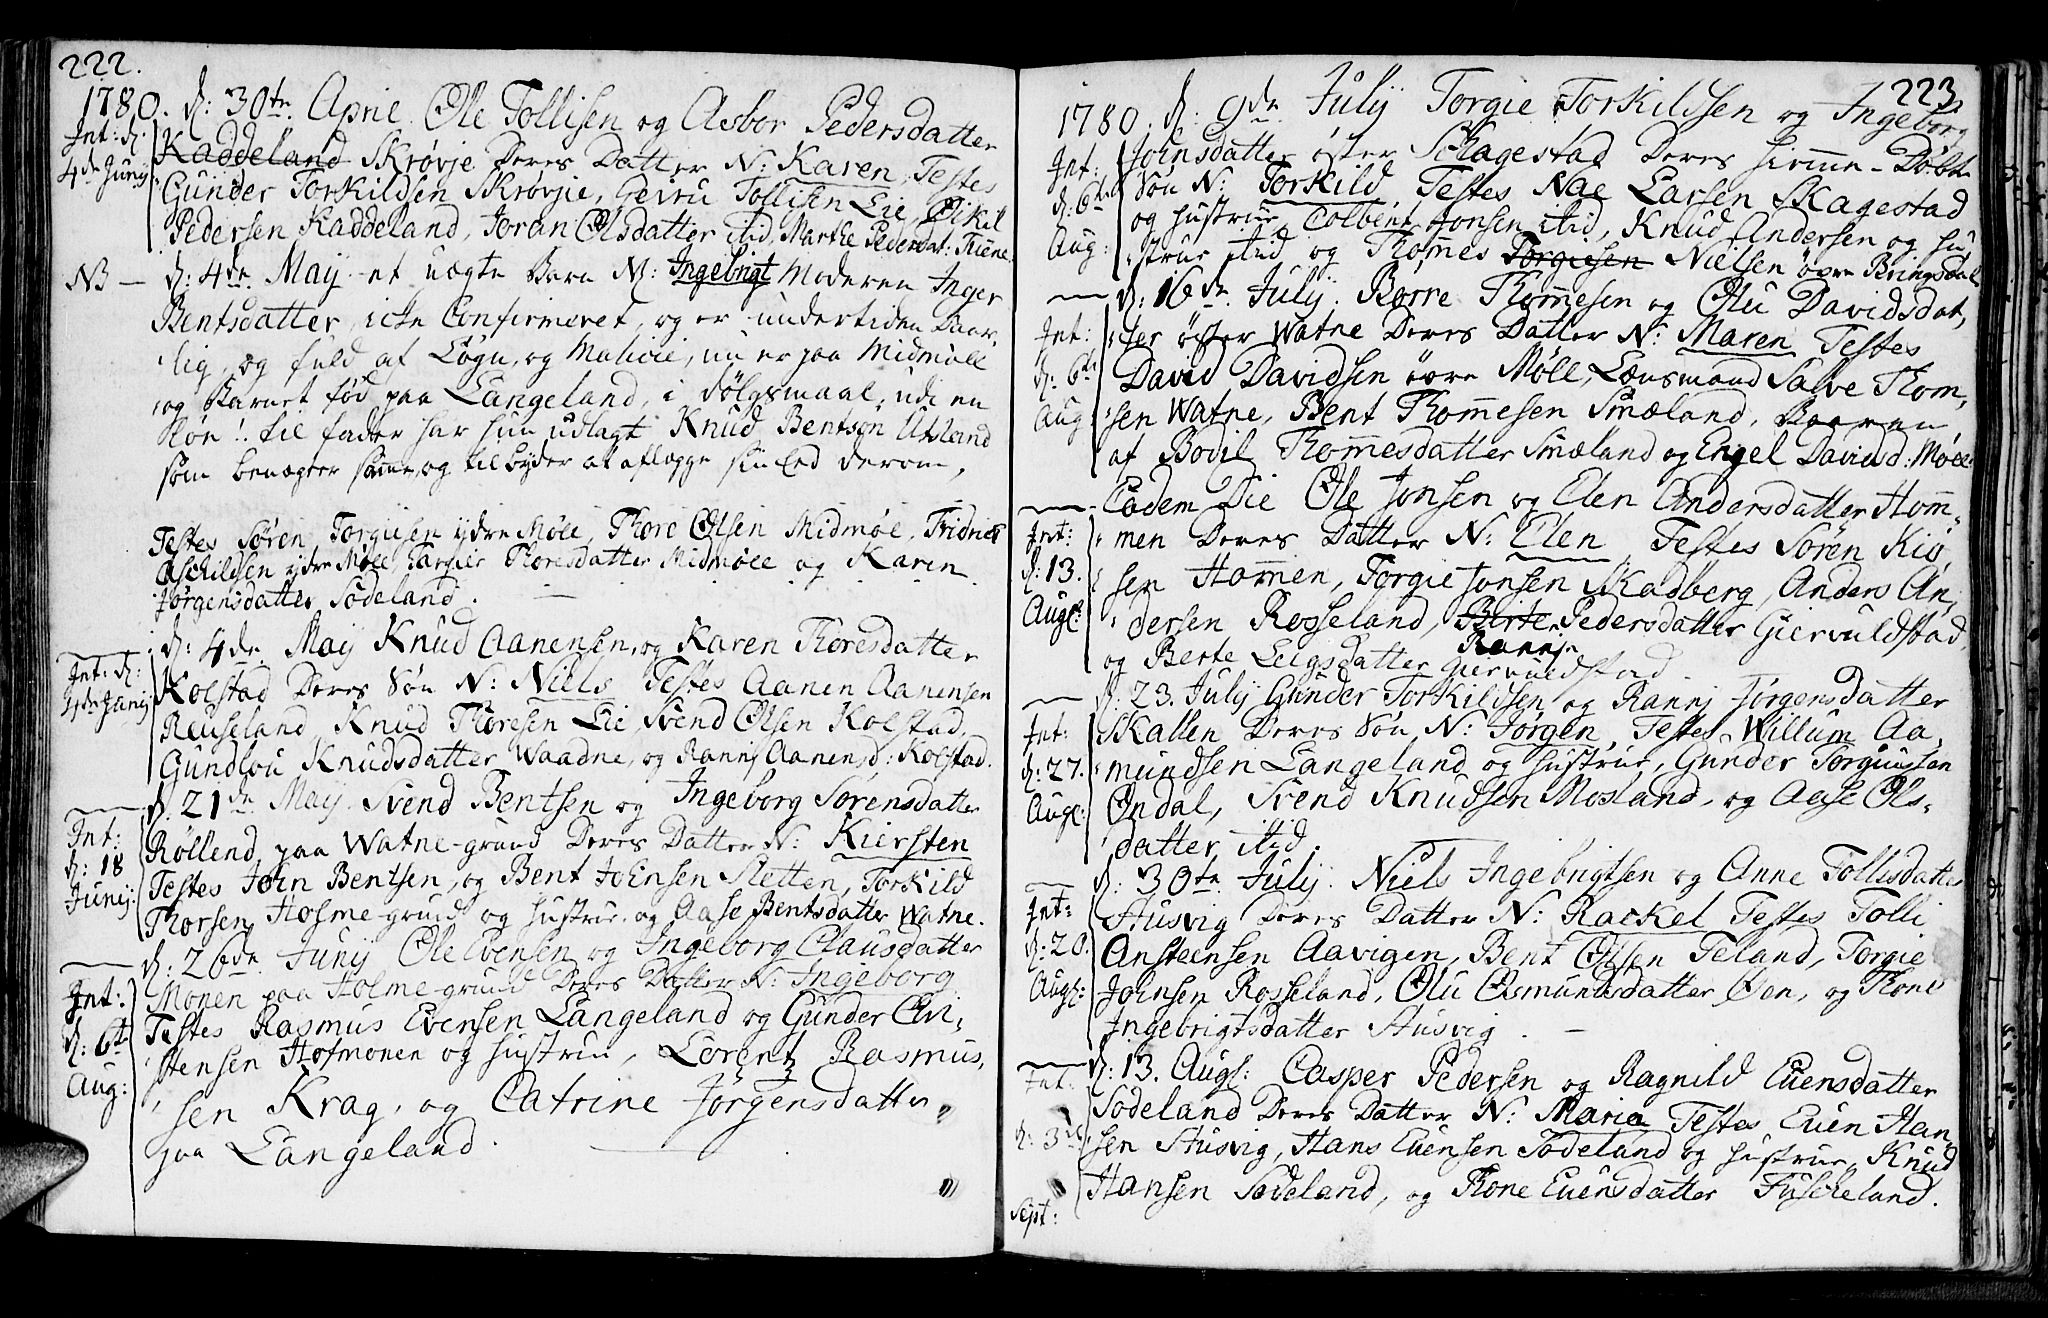 222.
1780. d: 30te Aprie Ole Tollisen og Asbor Pedersdatter
Int: d: 4de Junij
Kaddeland Skrøvje Deres Datter N: Karen, Testes
Gunder Torkildsen Skrøvje, Gevru Tollisen Lie, Eikil
Pedersen Kaddeland, Joran Olsdatter itid, Marthe Pedersdat: Tiüne
NB — d: 4de Maij et uægte Barn N: Ingebrigt Moderen Inger
Bentsdatter, icke Confirmeret, og er undertiden Daar,
lig, og fuld af Løgn, og Malicie, nu er paa Midmøle
og Barnet fød paa Langeland, i dølgsmaal, udi en
til fader har hun udlagt Knud Bentsøn Utsland
som benægter samme, og tilbyder at aflægge sin Eed derom,
Testes Søren Torgiusen ydre Møle, Thore Olsen Midmøe,
Aschildsen ydre Møle Targier Thoresdatter Midmøle og Karen
Jørgensdatter Sødeland.
d: 4de Maij Knud Aanensen, og Karen Thoresdatter
Int: d: 4de Junij
Kolstad Deres Søn N: Niels Testes Aanen Aanensen
Reuseland, Knud Thoresen Lie, Svend Olsen Kolstad,
Gundlou Knudsdatter Waadne, og Rannj Aanensd: Kolstad.
d. 21de Maij Svend Bentsen og Ingeborg Sørensdatter
Int: d: 18 Junij:
Røllend paa Watne-grund Deres Datter N: Kiersten
Testes John Bentsen, og Bent Johnsen Sletten, Torkild
Thorsen Holme-grund og hustrue og Aase Bentsdatter Watne.
d: 26de Junij Ole Evensen og Ingeborg Clausdatter
Int: d: 6te Aug:
Monen paa Holme-grund Deres Datter N: Ingeborg
Testes Rasmus Evensen Langeland og Gunder Chri,
stensen Holmonen og hustrue, Lorentz Rasmus,
sen Krag, og Catrine Jørgensdatter
paa Langeland.
223
1780. d: 9de Julij Torgie Torkildsen og Ingeborg
Int: d: 6te Aug:
Johnsdatter øster Schagestad Deres hiemme-Døbte
Søn N: Torkild Testes Nae Larsen Skagestad
og hustrue, Colbent Jonsen itid, Knud Andersen og hu,
strue itid og Thommes Torgiesen Nielsen øvre Bringsdal
d: 16de Julij. Børre Thommesen og Olu Davidsdat,
Int: d: 6te Aug:
ter øster Watne Deres Datter N: Maren Testes
David Davidsen øvre Møll, Lænsmand Salve Thom,
sen Watne, Bent Thommesen Smæland, Baaren
af Bodil Thommesdatter Smæland og Engel Davidsd: Møll
Eadem Die Ole Jonsen og Elen Andersdatter Hom,
Int: d: 13. Augl:
men Deres Datter N: Elen Testes Søren Kiø,
sen Hommen, Torgie Jonsen Skadberg, Anders An,
dersen Rosseland, Birte Rannj Pedersdatter Giervuldstad
og Berte Leigsdatter Giervuldstad
d: 23. Julij Gunder Torkildsen og Rannj Jørgensdatter
Int: d: 27. Augl:
Skallen Deres Søn N: Jørgen, Testes Willum Aa,
mundsen Langeland og hustrue, Gunder Torgiussen
Øndal, Svend Knudsen Mosland, og Aase Ols-
datter itid.
d: 30te Julij. Niels Ingebrigtsen og Anne Tollisdatter
Int: d: 20. Augl:
Husvig Deres Datter N: Rackel Testes Tolli
Ansteensen Aavigen, Bent Olsen Teland, Torgie
Johnsen Rosseland, Olu Osmundsdatter Øen, og Thone
Ingebrigtsdatter Husvig.
d: 13. Augl: Casper Pedersen og Ragnild Euensdatter
Int: d: 3de Sept:
Sodeland Deres Datter N: Maria Testes Euen Han,
sen Husvig, Hans Euensen Sodeland og hustrue, Knud
Hansen Sodeland, og Thone Euensdatter Fuscheland.